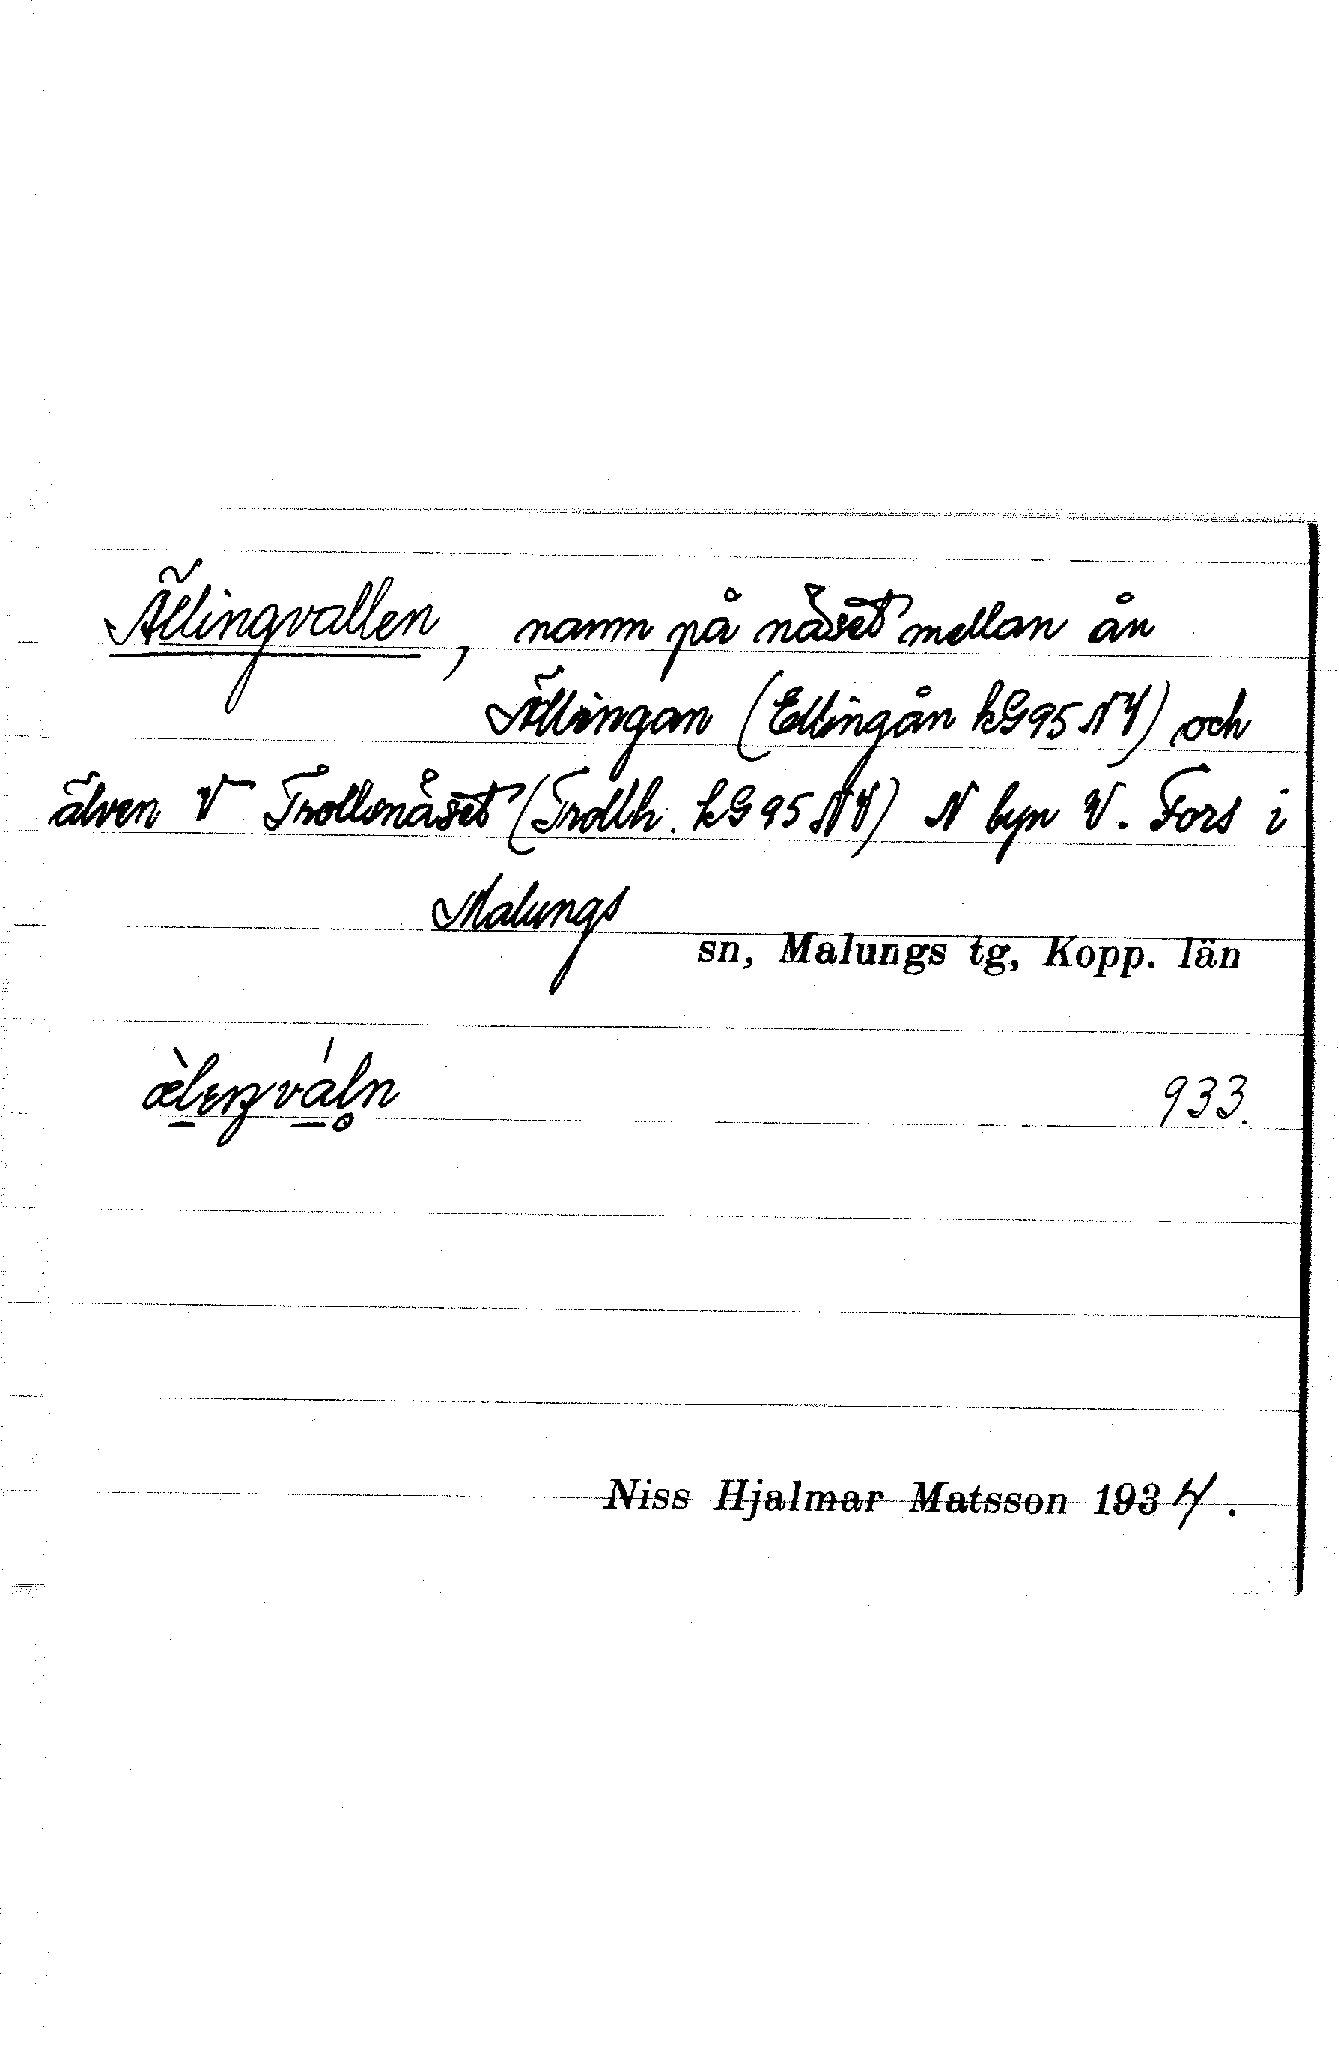 Ällingvallen, namn på näset mellan ån
Ällingan (Ellingån kG95NV) och
älven V Trollsnäset (Trollh. kG95NV) N byn V. Fors i
Malungs
sn, Malungs tg, Kopp. län
933.
Niss Hjalmar Matsson 1934.